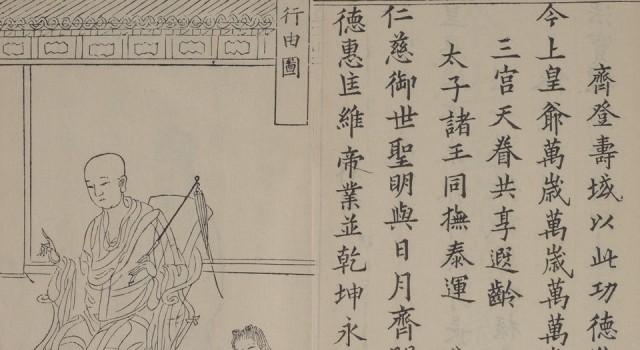 齊登壽域以此功德
今上皇爺萬歲萬歲萬萬
三宮天眷共享遐齡
太子諸王同撫泰運
仁慈御世聖明與日月齊
德惠匡維帝業並乾坤永
行由圖